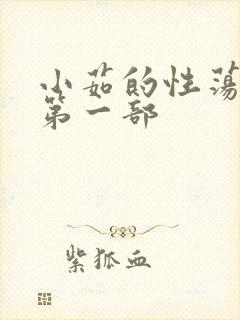 小茹的性荡
第一部
紫狐血